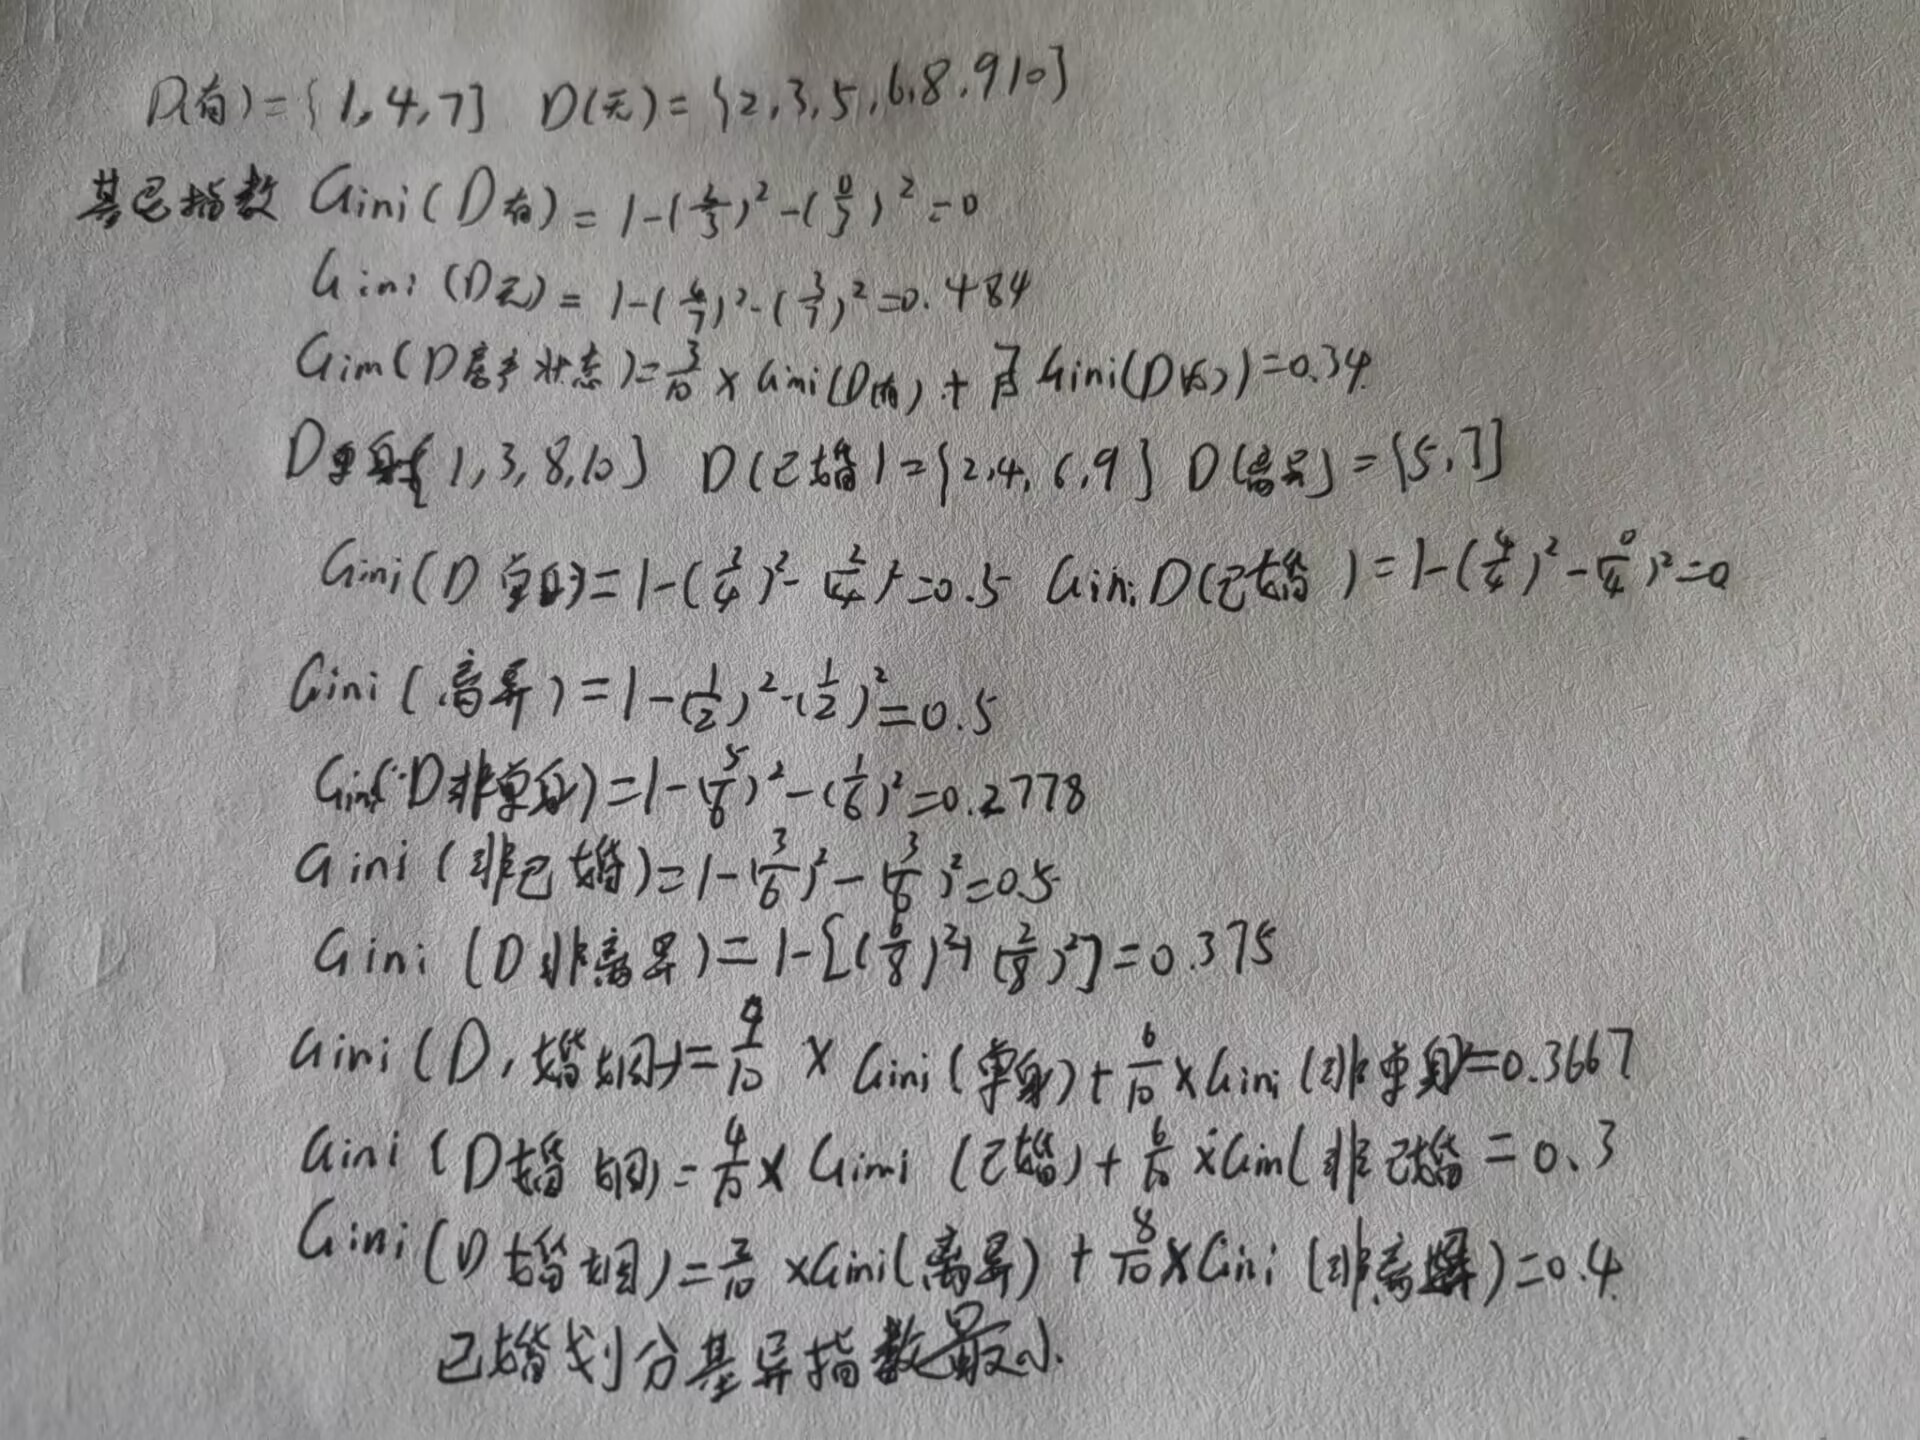 D(有)={1,4,7} D(无)={2,3,5,6,8,9 10}
基尼指数 Gini(D有)=1-(3/3)²-(0/3)²=0
Gini(D无)=1-(4/7)²-(3/7)²=0.484
Gini(D房产状态)=3/10×Gini(D有)+7/10 Gini(D无)=0.34
D单身{1,3,8,10} D(已婚)={2,4,6,9} D(离异)={5,7}
Gini(D单身)=1-(2/4)²-(2/4)²=0.5 Gini D(已婚)=1-(4/4)²-(0/4)²=0
Gini(离异)=1-(1/2)²-(1/2)²=0.5
Gini(D非单身)=1-(5/6)²-(1/6)²=0.2778
Gini(非已婚)=1-(3/6)²-(3/6)²=0.5
Gini(D非离异)=1-[(6/8)²+(2/8)²]=0.375
Gini(D,婚姻)=4/10×Gini(单身)+6/10×Gini(非单身)=0.3667
Gini(D婚姻)=4/10×Gini(已婚)+6/10×Gini(非已婚=0.3
Gini(D婚姻)=2/10×Gini(离异)+8/10×Gini(非离异)=0.4
已婚划分基异指数最小.